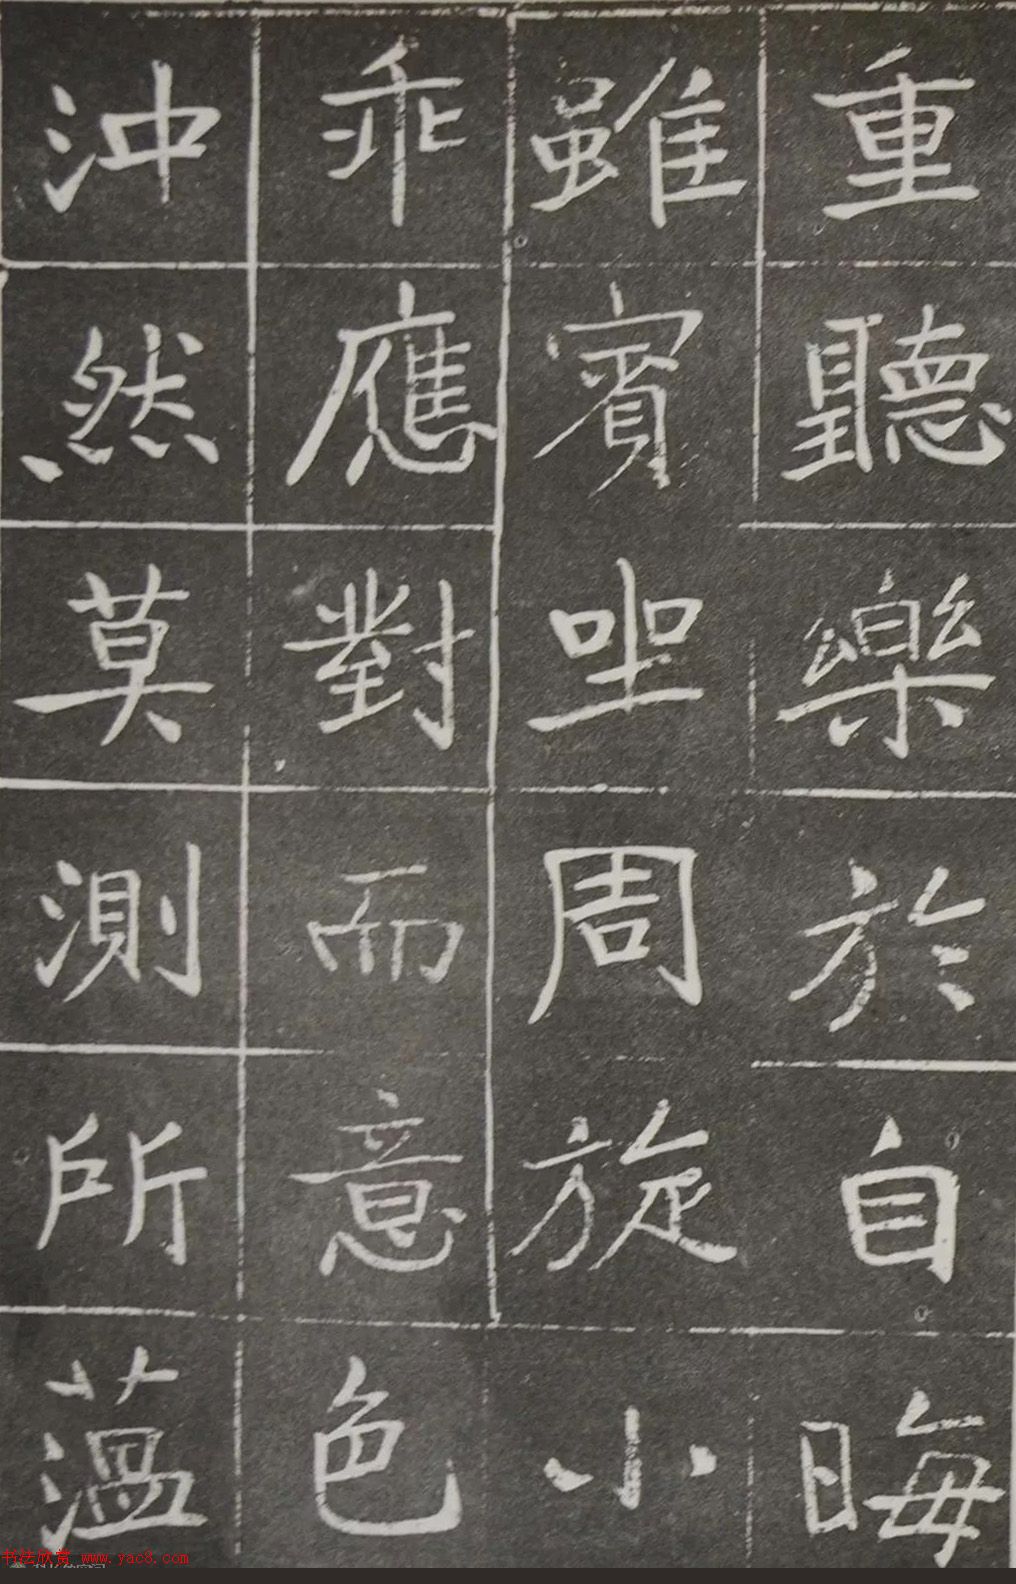 重聽樂於自晦
雖賓坐周旋小
乖應對而意色
沖然莫測所薀
书法欣赏 www.yac8.com